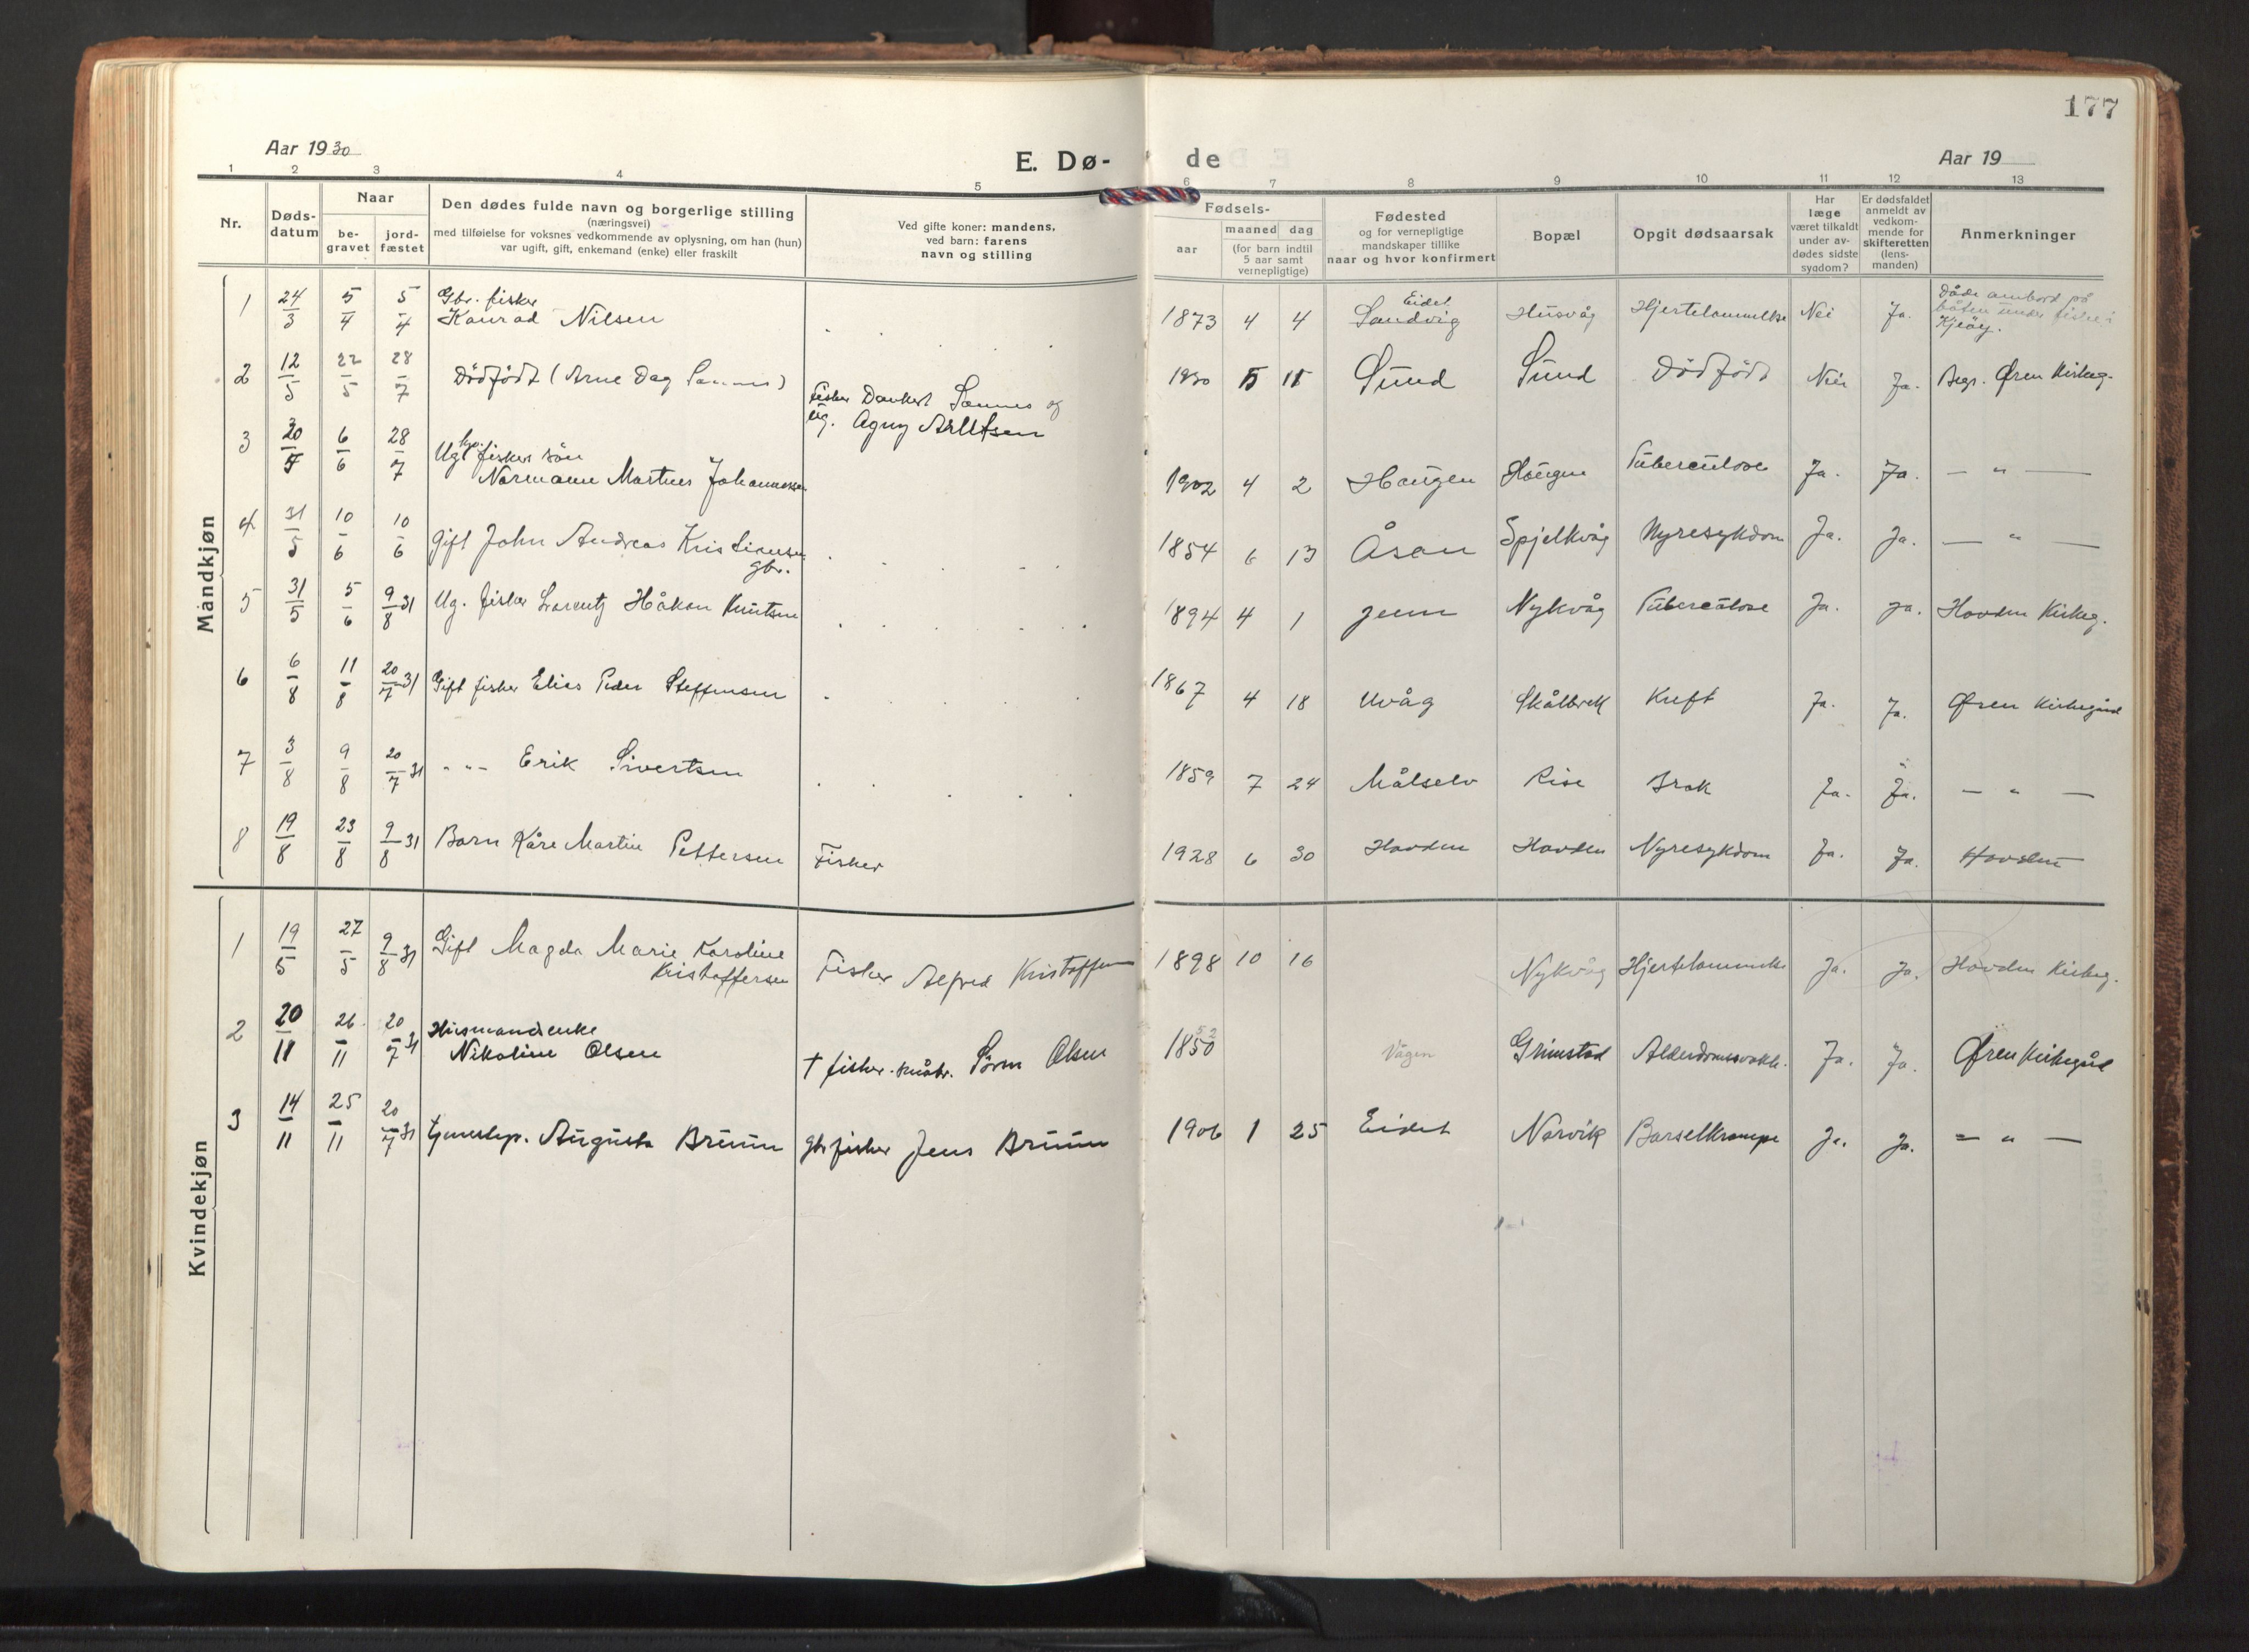 177
Aar 1930
E. Dø-
de
Aar 19
1 2 3 4 5 6 7 8 9 10 11 12 13
Nr.
Døds-
datum
Naar
be-
gravet
jord-
fæstet
Den dødes fulde navn og borgerlige stilling
(næringsvei)
med tilføielse for voksnes vedkommende av oplysning, om han (hun)
var ugift, gift, enkemand (enke) eller fraskilt
Ved gifte koner: mandens,
ved barn: farens
navn og stilling
Fødsels-
aar
maaned dag
(for barn indtil
5 aar samt
vernepligtige)
Fødested
og for vernepligtige
mandskaper tillike
naar og hvor konfirmert
Bopæl
Opgit dødsaarsak
Har
læge
været tilkaldt
under av-
dødes sidste
sygdom?
Er dødsfaldet
anmeldt av
vedkom-
mende for
skifteretten
(lens-
manden)
Anmerkninger
Mandkjøn
1 24/3 5/4 5/4 Gbr. fisker
Konrad Nilsen 1873 4 4 Eidet
Sandvig Husvåg Nei Ja. Døde ombord på
båten under fiske i
Kjeøy.
2 12/5 22/5 28/7 Dödfödt (Arne Dag Sannes) Fisker Dankert Sannes og
ug. Agny 1930 5 Sund Sund Dödfödt Nei Ja. Begr. Øren Kirkeg.
3 6/6 28/7 Ugt fiskers sön
Normann Martnes Johannessen 1902 4 2 Haugen Haugen Tuberculose Ja. Ja. — " —
4 31/5 10/6 10/6 Gift John Andreas Kristiansen
gbr. 1854 6 13 Åsan Spjelkvåg Nyresykdom Ja. Ja. — " —
5 31/5 5/6 9/8 31 Ug. fisker Lorentz Håkon Knutsen 1894 4 1 Nykvåg Tuberculose Ja. Ja. Hovden Kirkeg.
6 6/8 11/8 20/7 31 Gift fisker Elias Peder Steffensen 1867 4 18 Uvåg Skålbrek Kreft Ja. Ja. Øren Kirkegård
7 3/8 9/8 20/7 31 - " - Erik Sivertsen 1859 7 24 Målselv Rise Brok Ja. Ja. — " —
8 19/8 23/8 9/8 31 Barn Kåre Martin Pettersen Fisker 1928 6 30 Hovden Hovden Nyresykdom Ja. Ja. Hovden
Kvindekjøn
1 19/5 27/5 9/8 31 Gift Magda Marie Karoline
Kristoffersen Fisker Alfred Kristoffersen 1898 10 16 Nykvåg Ja. Ja. Hovden Kirkeg.
2 20/11 26/11 20/7 31 Husmandsenke
Nikoline Olsen † fisker. småbr. Sören Olsen 52
1850 Vågen Grimstad Ja. Ja. Øren Kirkegård
3 14/11 25/11 20/7 31 Augusta Bruun gbr fisker Jens Bruun 1906 1 25 Eidet Narvik Barselkrampe Ja. Ja. — " —